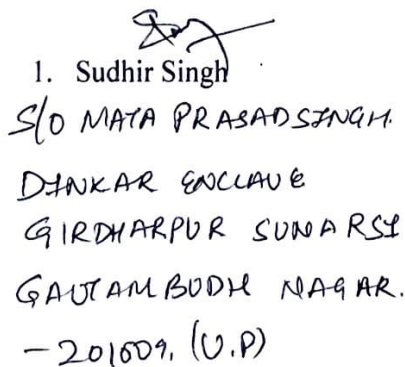 1. Sudhir Singh
S/O MATA PRASAD SINGH.
DINKAR ENCLAVE
GIRDHARPUR SUNARSI
GAUTAM BUDH NAGAR.
- 201009, (U.P)